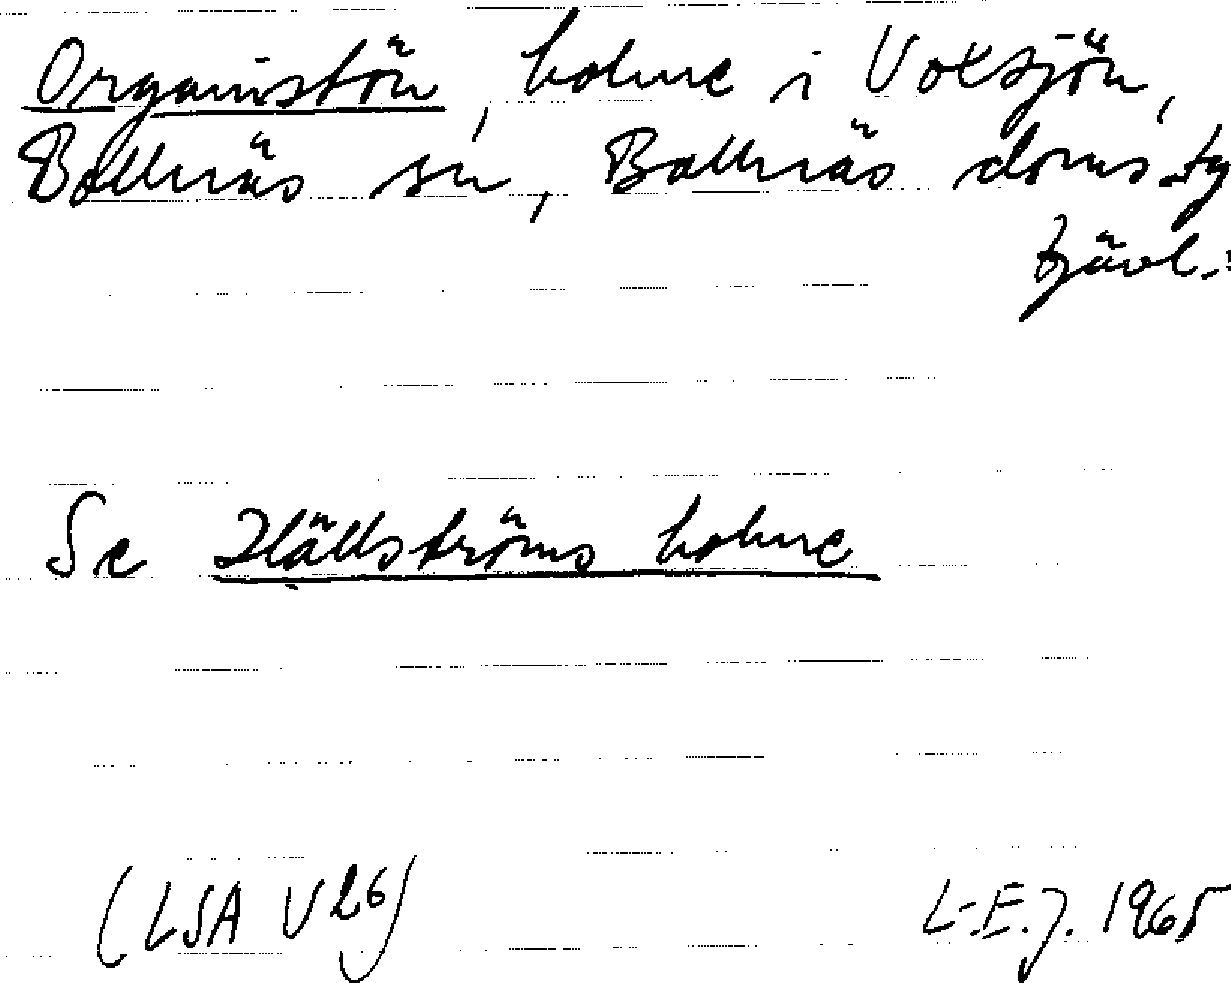 Organistön, holme i Voxsjön,
Bollnäs sn, Bollnäs doms.tg
Gävl.
Se Hällströms holme
(LSA V 26)
L-E.J. 1965